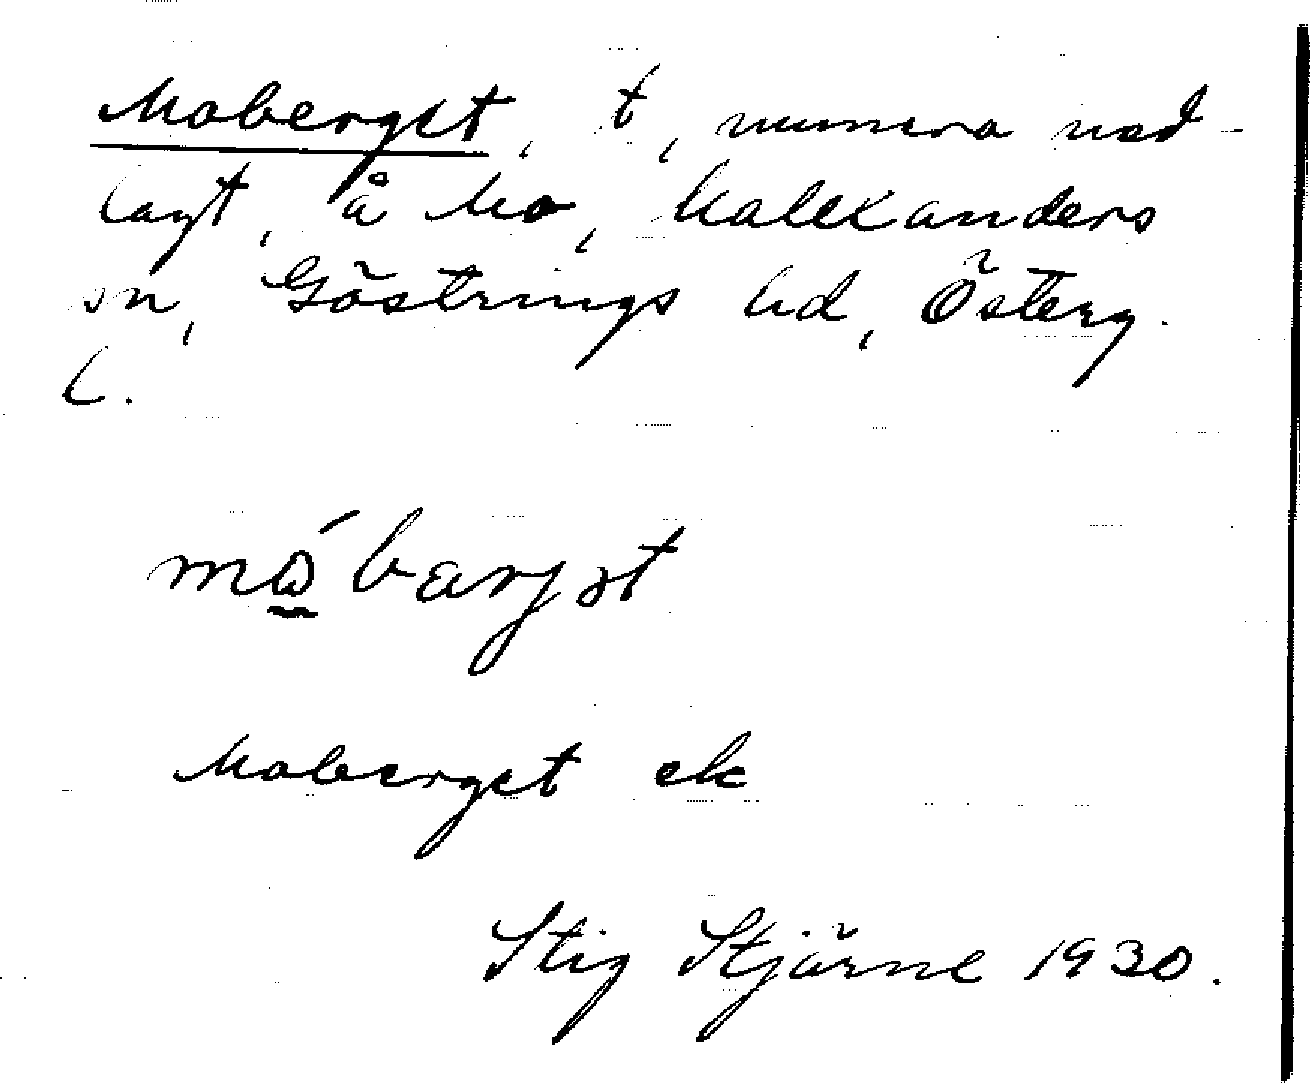 Moberget, t, numera ned-
lagt, å Mo, Kallexanders
sn, Göstrings hd, Österg.
l.
mó̲barjət
Moberget ek
Stig Stjärne 1930.